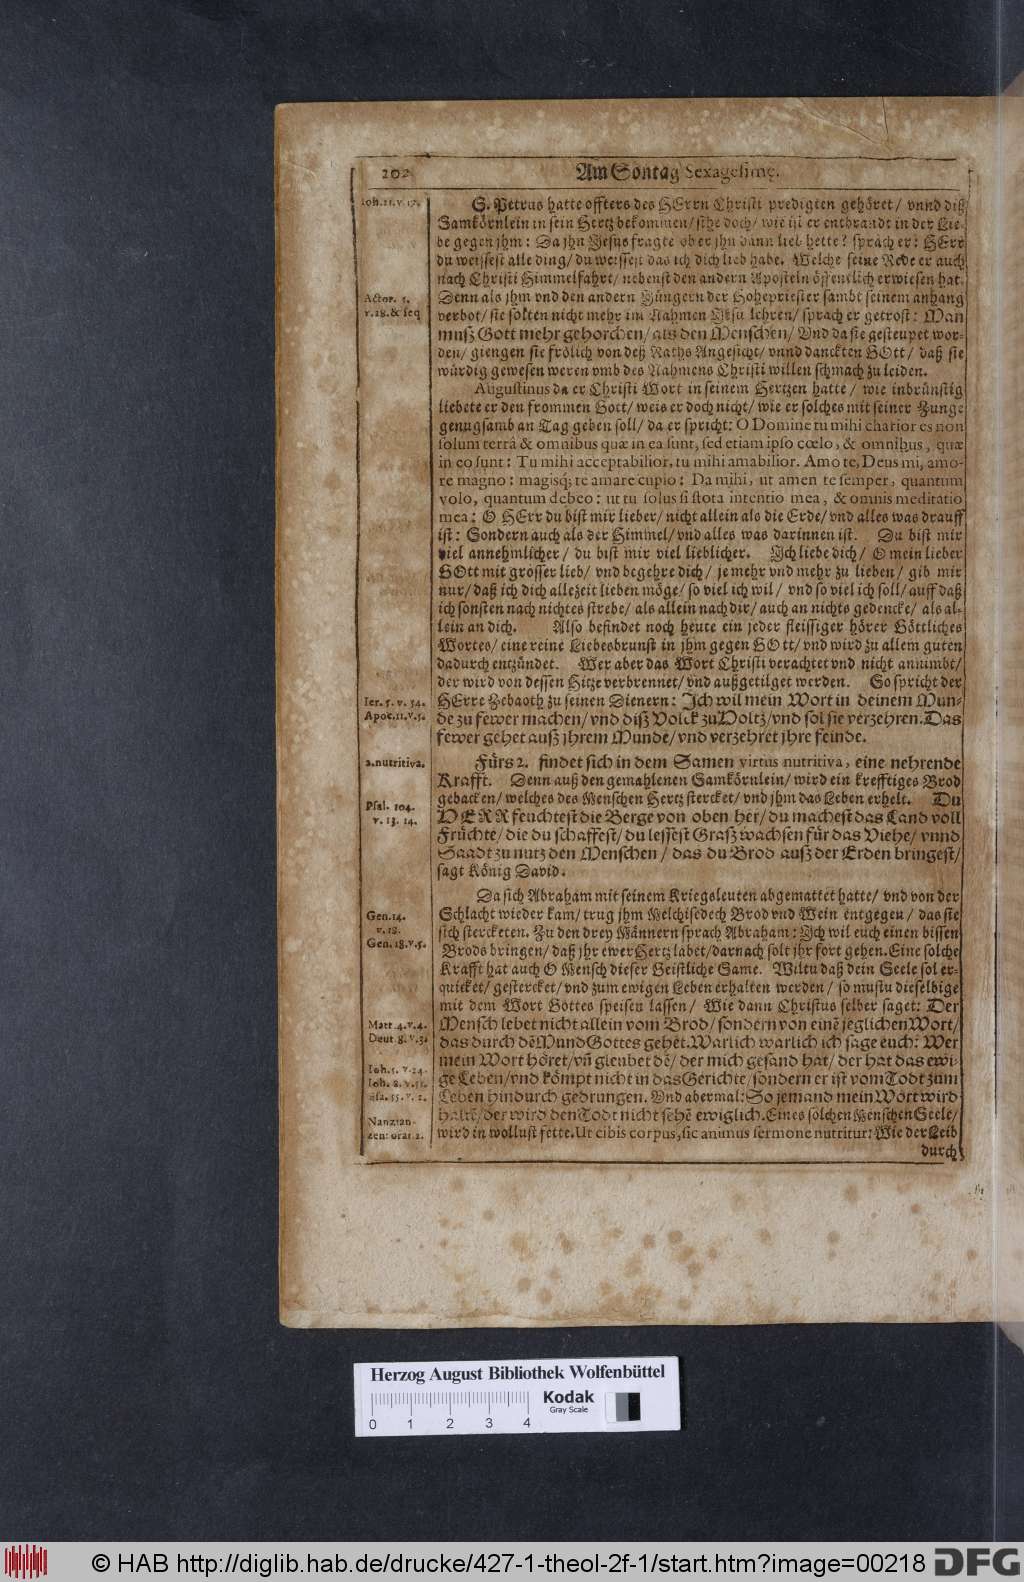 202
Am Sontag Sexagesimę.
Joh. 21. v. 17.
S. Petrus hatte offters des HErrn Christi predigten gehöret/ vnnd diß
Samkörnlein in sein Hertz bekommen/ sihe doch/ wie ist er enthrandt in der Lie-
be gegen jhm: Da jhn Jesus fragte ob er jhn dann lieb hette? sprach er: HErr
du weissest alle ding/ du weissest das ich dich lieb habe. Welche seine Rede er auch
nach Christi Himmelfahrt/ nebenst den andern Aposteln öffentlich erwiesen hat.
Actor. 5.
Denn als jhm vnd den andern Jüngern der Hohepriester sambt seinem anhang
v. 28. & seq
verbot/ sie solten nicht mehr im Nahmen JEsu lehren/ sprach er getrost: Man
muß Gott mehr gehorchen/ als den Menschen/ Vnd da sie gesteupet wor-
den/ giengen sie frölich von deß Raths Angesicht/ vnnd danckten GOtt/ daß sie
würdig gewesen weren vmb des Nahmens Christi willen schmach zu leiden.
Augustinus da er Christi Wort in seinem Hertzen hatte/ wie inbrünstig
liebete er den frommen Gott/ weis er doch nicht/ wie er solches mit seiner Zunge
genugsamb an Tag geben soll/ da er spricht: O Domine tu mihi charior es non
solum terrâ & omnibus quæ in ea sunt, sed etiam ipso cœlo, & omnibus, quæ
in eo sunt: Tu mihi acceptabilior, tu mihi amabilior. Amo te, Deus mi, amo-
re magno: magisq; te amare cupio: Da mihi, ut amen te semper, quantum
volo, quantum debeo: ut tu solus si stota intentio mea, & omnis meditatio
mea: O HErr du bist mir lieber/ nicht allein als die Erde/ vnd alles was drauff
ist: Sondern auch als der Himmel/ vnd alles was darinnen ist. Du bist mir
viel annehmlicher/ du bist mir viel lieblicher. Ich liebe dich/ O mein lieber
GOtt mit grosser lieb/ vnd begehre dich/ je mehr vnd mehr zu lieben/ gib mir
nur/ daß ich dich allezeit lieben möge/ so viel ich wil/ vnd so viel ich soll/ auff daß
ich sonsten nach nichtes strebe/ als allein nach dir/ auch an nichts gedencke/ als al-
lein an dich. Also befindet noch heute ein jeder fleissiger hörer Göttliches
Wortes/ eine reine Liebesbrunst in jhm gegen GOtt/ vnd wird zu allem guten
dadurch entzündet. Wer aber das Wort Christi verachtet vnd nicht annimbt/
der wird von dessen Hitze verbrennet/ vnd außgetilget werden. So spricht der
Ier. 5. v. 34.
HErre Zebaoth zu seinen Dienern: Ich wil mein Wort in deinem Mun-
Apoc. 11. v. 5.
de zu fewer machen/ vnd diß Volck zu Holtz/ vnd sol sie verzehren. Das
fewer gehet auß jhrem Munde/ vnd verzehret jhre feinde.
2. nutritiva.
Fürs 2. findet sich in dem Samen virtus nutritiva, eine nehrende
Krafft. Denn auß den gemahlenen Samkörnlein/ wird ein krefftiges Brod
gebacken/ welches des Menschen Hertz stercket/ vnd jhm das Leben erhelt. Du
Psal. 104.
v. 13. 14.
HERR feuchtest die Berge von oben her/ du machest das Land voll
Früchte/ die du schaffest/ du lessest Graß wachsen für das Viehe/ vnnd
Saadt zu nutz den Menschen/ das du Brod auß der Erden bringest/
sagt König David.
Da sich Abraham mit seinem Kriegsleuten abgemattet hatte/ vnd von der
Gen. 14.
Schlacht wieder kam/ trug jhm Melchisedech Brod vnd Wein entgegen/ das sie
v. 18.
sich sterckten. Zu den drey Männern sprach Abraham: Ich wil euch einen bissen
Gen. 18. v. 5.
Brods bringen/ daß jhr ewer Hertz labet/ darnach solt jhr fort gehen. Eine solche
Krafft hat auch O Mensch dieser Geistliche Same. Wiltu daß dein Seele sol er-
quicket/ gestercket/ vnd zum ewigen Leben erhalten werden/ so mustu dieselbige
mit dem Wort Gottes speisen lassen/ Wie dann Christus selber saget: Der
Matt. 4. v. 4.
Mensch lebet nicht allein vom Brod/ sondern von einē jeglichen Wort/
Deut. 8. v. 3.
das durch dē Mund Gottes gehēt. Warlich warlich ich sage euch: Wer
mein Wort höret/ vñ gleubet dē/ der mich gesand hat/ der hat das ewi-
Ioh. 5. v. 24.
ge Leben/ vnd kömpt nicht in das Gerichte/ sondern er ist vom Todt zum
Ioh. 8. v. 51.
Esa. 55. v. 2.
Leben hindurch gedrungen. Vnd abermal: So jemand mein Wort wird
haltē/ der wird den Todt nicht sehē ewiglich. Eines solchen Menschen Seele/
Nanzian-
zen: orat 2.
wird in wollust fette. Ut cibis corpus, sic animus sermone nutritur: Wie der Leib
durch
Herzog August Bibliothek Wolfenbüttel
0 1 2 3 4
Kodak
Gray Scale
© HAB http://diglib.hab.de/drucke/427-1-theol-2f-1/start.htm?image=00218
DFG